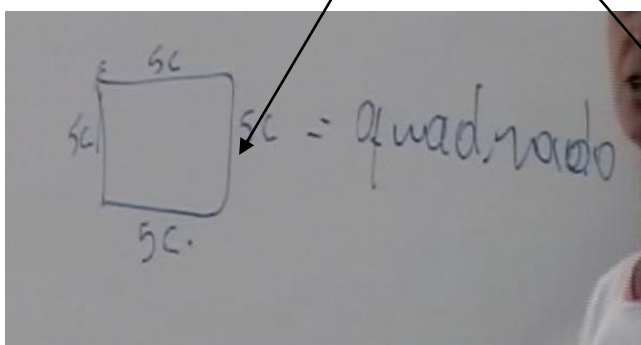 5c
5c 5c = quadrado
5c.